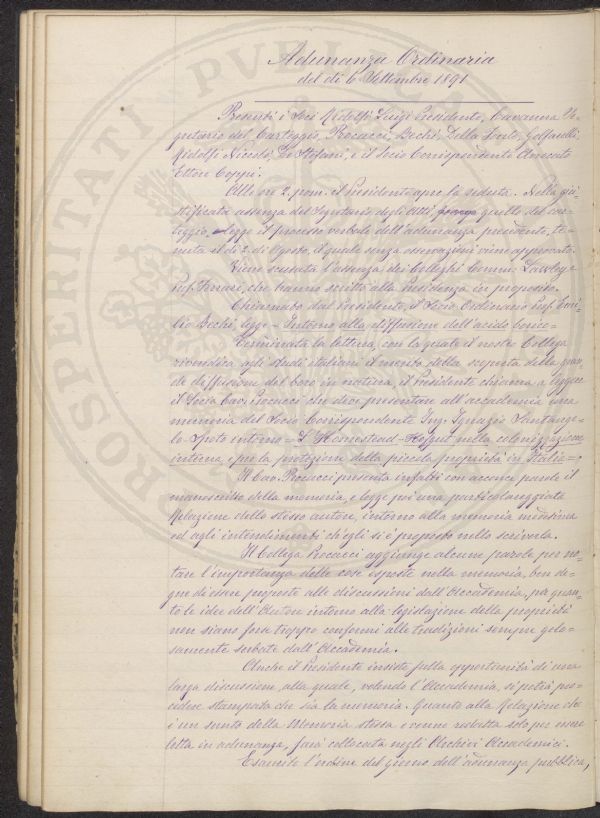 Adunanza Ordinaria
del dì 6 Settembre 1891
Presenti i Soci Ridolfi Luigi Presidente, Caruana Se=
gretario del Carteggio, Procacci, Bechi, Della Fonte, Golfarelli,
Ridolfi Niccolò, De Stefani, e il Socio Corrispondente Onorato
Ettore Coppi.
Alle ore 2 pom. il Presidente apre la seduta. Nella giu=
stificata assenza del Segretario degli Atti, quello del car=
teggio, legge il processo verbale dell'adunanza precedente, te=
nuta il dì 2 di Agosto, il quale senza osservazioni viene approvato.
Viene scusata l'assenza dei Colleghi Comm. Lawley e
Prof. Ferrari, che hanno scritto alla Presidenza in proposito.
Chiamato dal Presidente, il Socio Ordinario Prof. Emi=
lio Bechi, legge = Intorno alla diffusione dell'acido borico =
Terminata la lettura, con la quale il nostro Collega
rivendica agli studi italiani il merito della scoperta della gran=
de diffusione del boro in natura, il Presidente chiama a leggere
il Socio Cav. Procacci che deve presentare all'accademia una
memoria del Socio Corrispondente Ing. Ignazio Santange=
lo Spoto intorno = L'Homestead-Hofgut nella colonizzazione
interna, e per la protezione della piccola proprietà in Italia =.
Il Cav. Procacci presenta infatti con acconce parole il
manoscritto della memoria, e legge poi una particolareggiata
Relazione dello stesso autore, intorno alla memoria medesima
ed agli intendimenti ch'egli si è proposto nello scriverla.
Il Collega Procacci aggiunge alcune parole per no=
tare l'importanza delle cose esposte nella memoria, ben de=
gne di essere proposte alle discussioni dell'Accademia, per quan=
to le idee dell'Autore intorno alla legislazione della proprietà
non siano forse troppo conformi alle tradizioni sempre gelo=
samente serbate dall'Accademia.
Anche il Presidente insiste sulla opportunità di una
larga discussione, alla quale, volendo l'Accademia, si potrà pro=
cedere stampata che sia la memoria. Quanto alla Relazione che
è un sunto della Memoria stessa e venne redatta solo per esser
letta in adunanza, sarà collocata negli Archivi Accademici.
Esaurito l'ordine del giorno dell'adunanza pubblica,
PROSPERITATI PVBLICAE